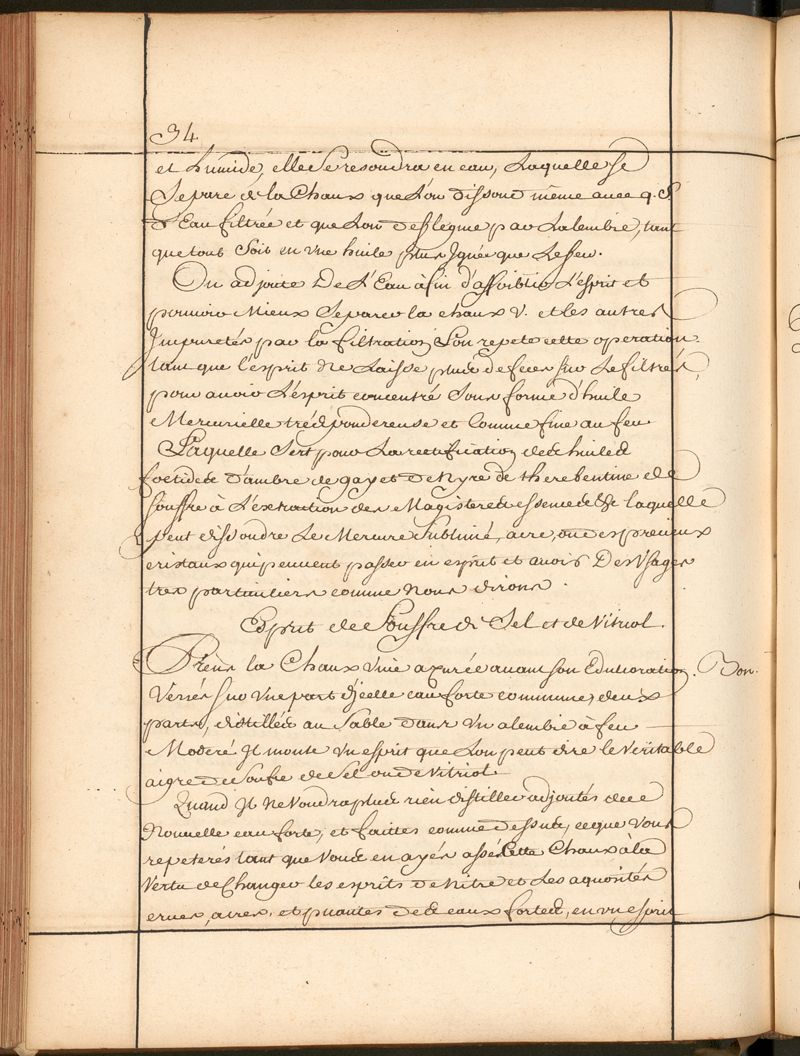 34
et humide, elle Se resoudra en eau, Laquelle se
Separe de la Chaux que L'on dissout même avec q. S
d'Eau filtrée et que Lon deflegme par Lalembic, tant
que tout Soit en vne huile plus Jgnée que Le feu.
On adjoute De L'Eau àfin d'affoiblir L'esprit et
pouuoir Mieux Separer la chaux V. et les autres
Jmpuretés par la filtration, Lon repete cette operation
tant que l'esprit Ne Laisse plus de feces sur Le filtre,
pour auoir L'esprit concentré Sous forme d'huile
Mercurielle trés ponderense et Comme fixe au feu
Laquelle Sert pour La rectification des huiles
foetides d'ambre de gayet de therebentine de
souffre à L'extraction des Magisteres essences & laquelle
peut dissoudre Le Mercure Sublimé, acre, en des precieux
cristaux qui peuuent passer en esprit et auoir Des Vsages
tres particuliers comme Nous dirons.
Esprit de Souffre du Sel et de Vitriol.
Prens la Chaux Viue apurée auant son Edulcoration. Bon.
Versés sur Vne part d'jcelle eau forte commune, deux
parts, distillés au Sable dans Vn alembic à feu
Moderé Jl monte Vn esprit que Lon peut dire le Veritable
aigre de Soufre de Sel ou de Vitriol.
Quand Jl Ne Voudra plus rien distiller adjoutés de
Nouuelle eau forte, et faittes comme dessus, ce que Vous
repeterés tant que Vous en ayés assés Cette Chaux à la
Vertu de Changer les esprits de Nitre et Les aquosités
crues, acres, et puantes des eaux fortes, en vn esprit